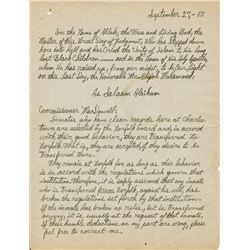 September 27-50
In the Name of Allah, the True and Living God, the
Master of this Great Day of Judgment, Who has Stepped down
here into Hell and has Dried the Unity of Islam to His long
lost Black Children ... and in the Name of His Holy Apostle,
whom He has raised up, here in our midst, to Shed Light
on this Last Day, the Honorable Mr. Elijah Mohammed.
As Salaam Alaikum
Commissioner MacDowell:
Inmates, who have clean records here at Charles-
town are selected by the Norfolk board and, in accord
with their good behaviour, they are transferred to
Norfolk. That is, they are accepted, if they desire to be
transferred there.
They remain at Norfolk for as long as this behavior
is in accord with the regulations which govern that
institution. Therefore, it is safely assumed that any inmate
who is transferred from Norfolk, against his will, has
broken the regulations set forth by that institution.
If the inmate has broken no rules, but is transferred
anyway, it is usually at the request of that inmate.
If these humble deductions on my part are wrong, please
feel free to correct me.